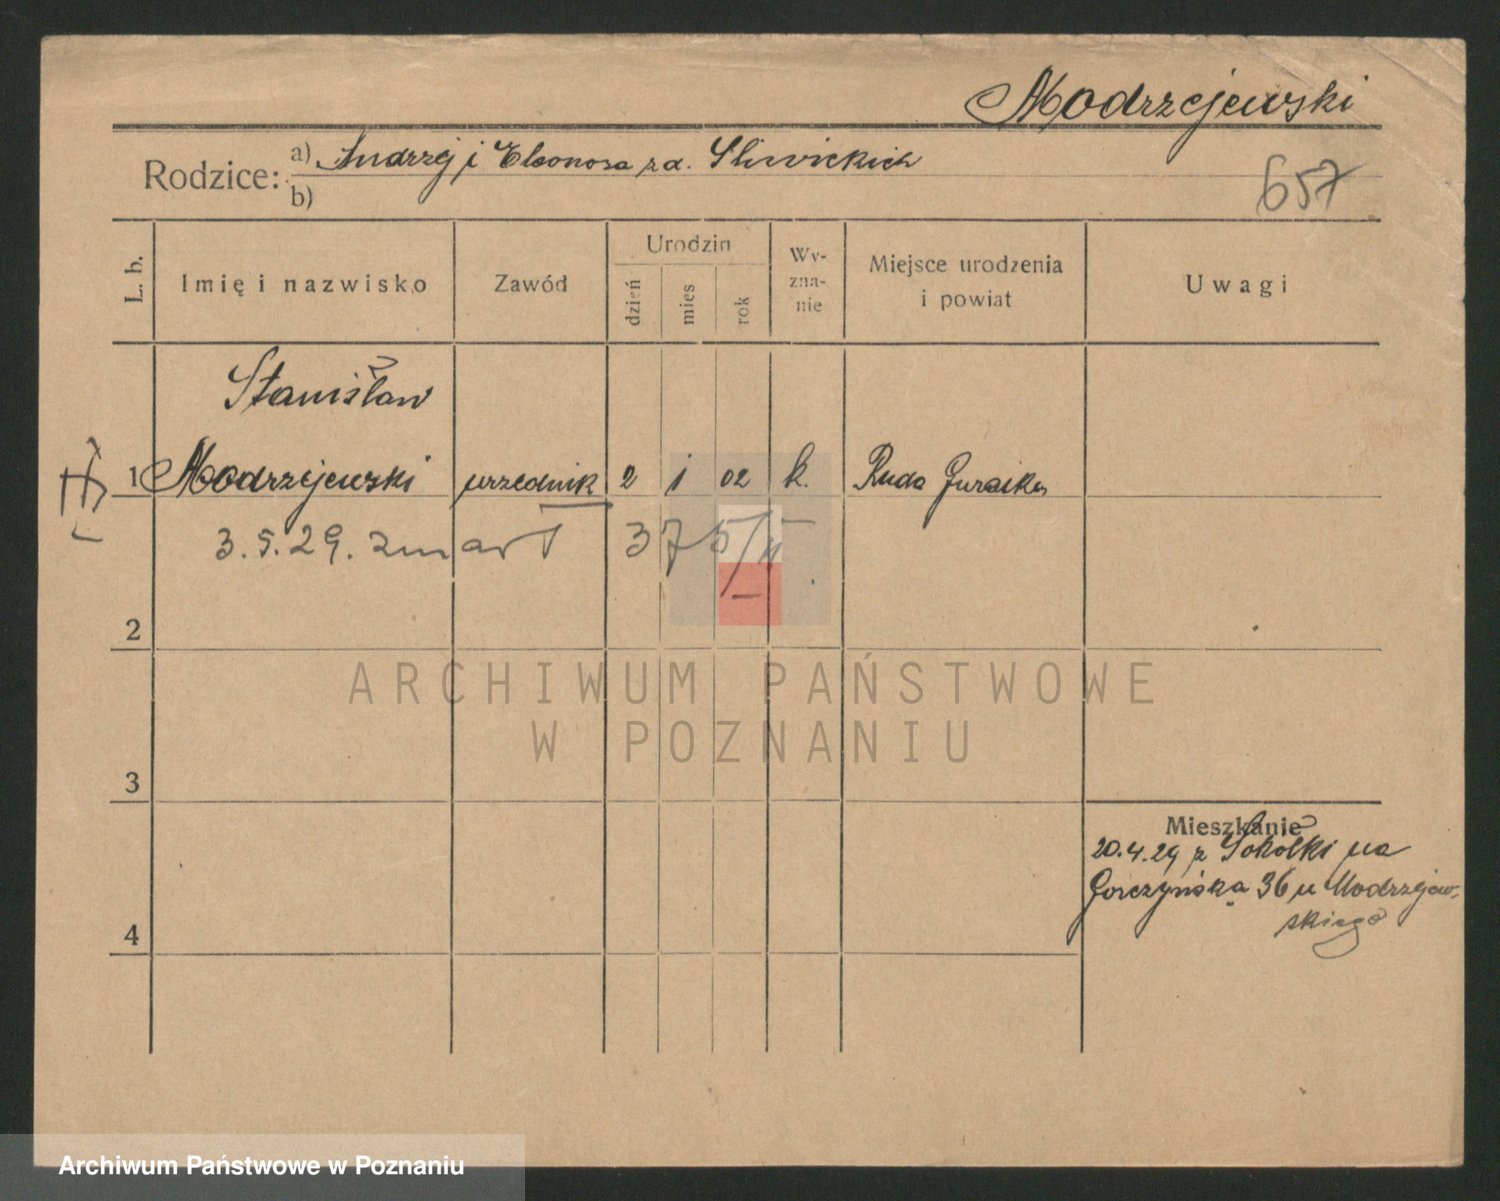 Modrzejewski
Rodzice: a) Andrzej i Eleonora z d. Śliwickich
b)
657
L. b.
Imię i nazwisko
Zawód
Urodzin
dzień
mies
rok
Wy-
zna-
nie
Miejsce urodzenia
i powiat
Uwagi
Stanisław
1 Modrzejewski urzednik 2 1 02 k. Ruda
3.5.29. zmarł 375/
2
ARCHIWUM PAŃSTWOWE
W POZNANIU
3
Mieszkanie
20.4.29 z Sokolki na
4 Gorczyńska 36 u Modrzejew-
skiego
Archiwum Państwowe w Poznaniu